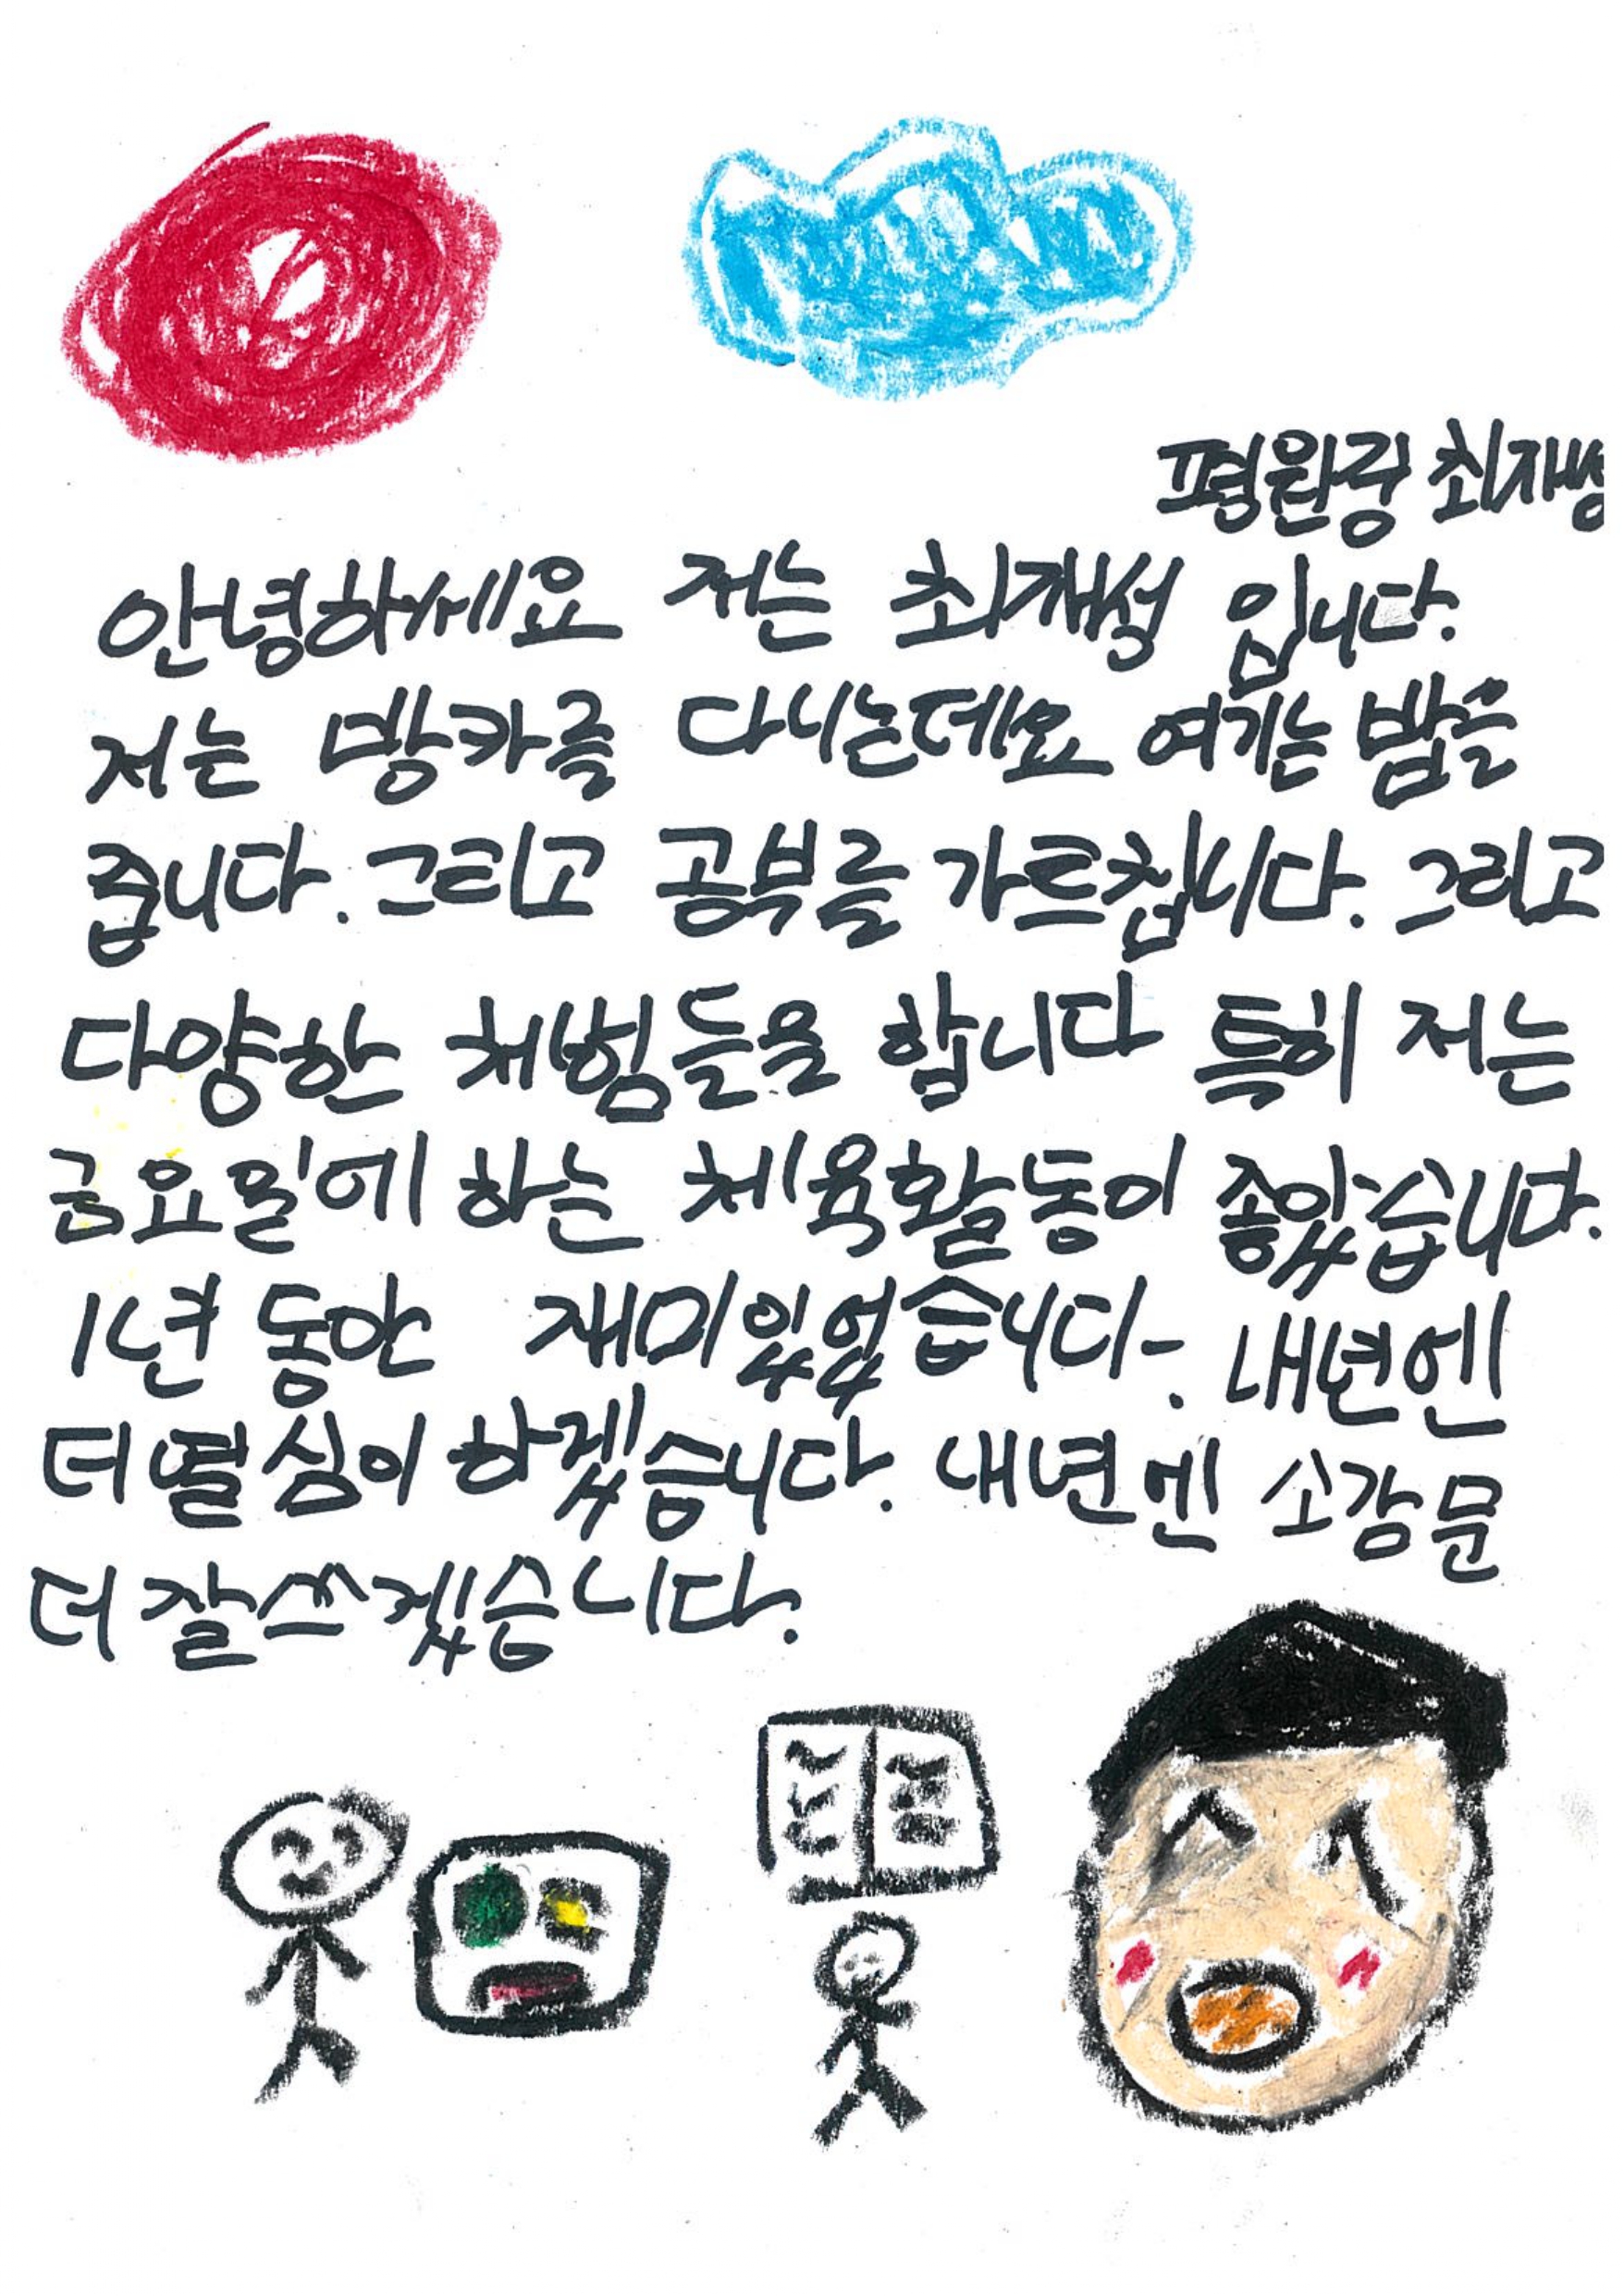 평원중 최재성
안녕하세요 저는 최재성 입니다.
저는 방카를 다니는데요 여기는 밥을
줍니다. 그리고 공부를 가르칩니다. 그리고
다양한 체험들을 합니다 특히 저는
금요일에 하는 체육활동이 좋았습니다.
1년 동안 재미있었습니다. 내년엔
더 열심이 하겠습니다. 내년엔 소감문
더 잘쓰겠습니다.